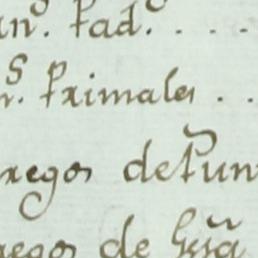 n. Pad. . . .
n.s Primales . .
regos de Pun
regos de